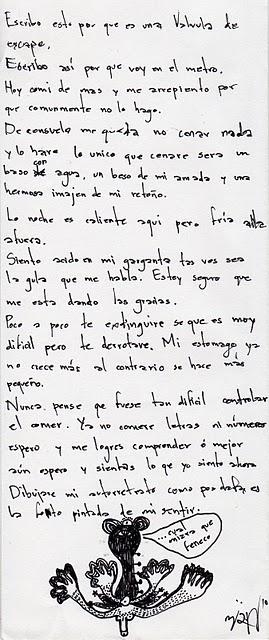 Escribo esto por que es una Valvula de
escape.
Escribo así por que voy en el metro.
Hoy comi de mas y me arrepiento por
que comunmente no lo hago.
De consuelo me queda no cenar nada
y lo hare lo unico que cenare sera un
baso con agua, un beso de mi amada y una
hermosa imajen de mi retoño.
La noche es caliente aqui pero fria alla
afuera.
Siento acido en mi garganta tas vos sea
la gula que me habla. Estoy seguro que
me esta dando las gracias.
Poco a poco te extinguire se que es muy
dificil pero te derrotare. Mi estomago ya
no crece más al contrario se hace más
pequeño.
Nunca pense qe fuese tan dificil controlar
el comer. Ya no comere letras ni números
espero y me logres comprender ó mejor
aún espero y sientas lo qe yo siento ahora
Dibujare mi autorretrato como
la pintada de mi sentir.
...cual
que
fenece
10